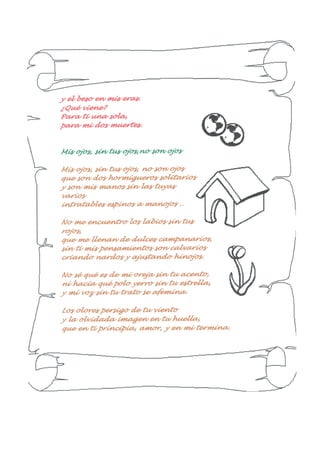 y el beso en mis eras.
¿Qué viene?
Para ti una sola,
para mí dos muertes.
Mis ojos, sin tus ojos,no son ojos
Mis ojos, sin tus ojos, no son ojos
que son dos hormigueros solitarios
y son mis manos sin las tuyas
varios
intratables espinos a manojos ..
No me encuentro los labios sin tus
rojos,
que me llenan de dulces campanarios,
sin ti mis pensamientos son calvarios
criando nardos y ajustando hinojos.
No sé qué es de mi oreja sin tu acento,
ni hacia qué polo yerro sin tu estrella,
y mi voz sin tu trato se afemina.
Los olores persigo de tu viento
y la olvidada imagen en tu huella,
que en ti principia, amor, y en mí termina.